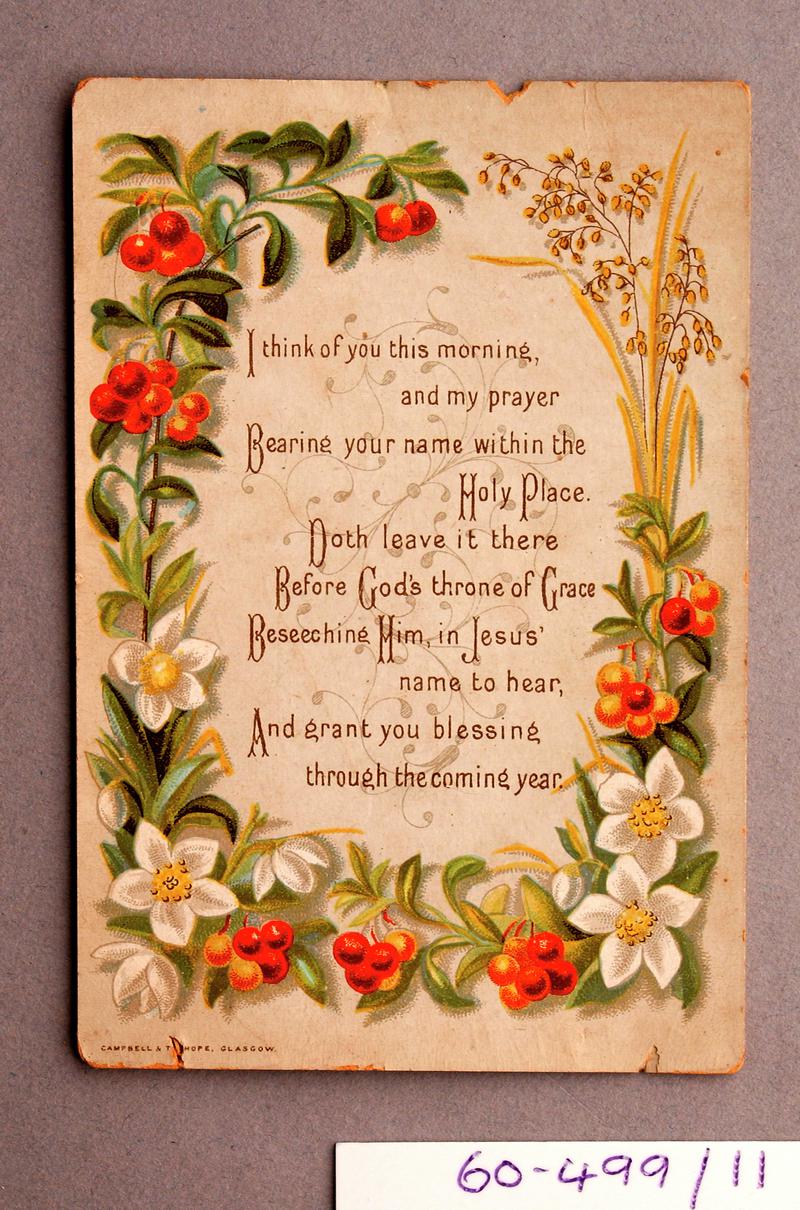 I think of you this morning,
and my prayer
Bearing your name within the
Holy Place.
Doth leave it there
Before God's throne of Grace
Beseeching Him, in Jesus'
name to hear,
And grant you blessing
through the coming year.
CAMPBELL & T HOPE, GLASGOW.
60-499/11